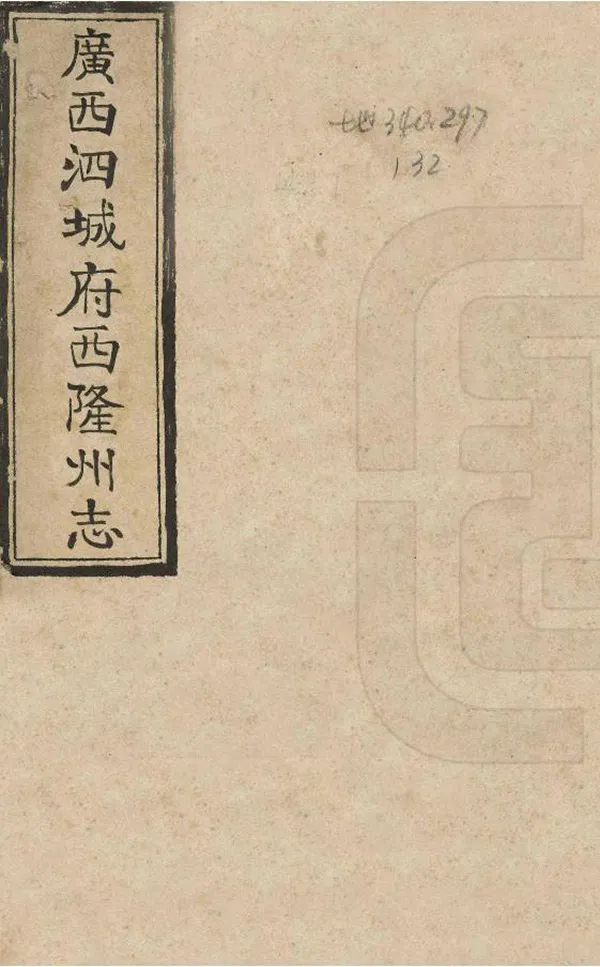 廣西泗城府西隆州志
地340.297
132